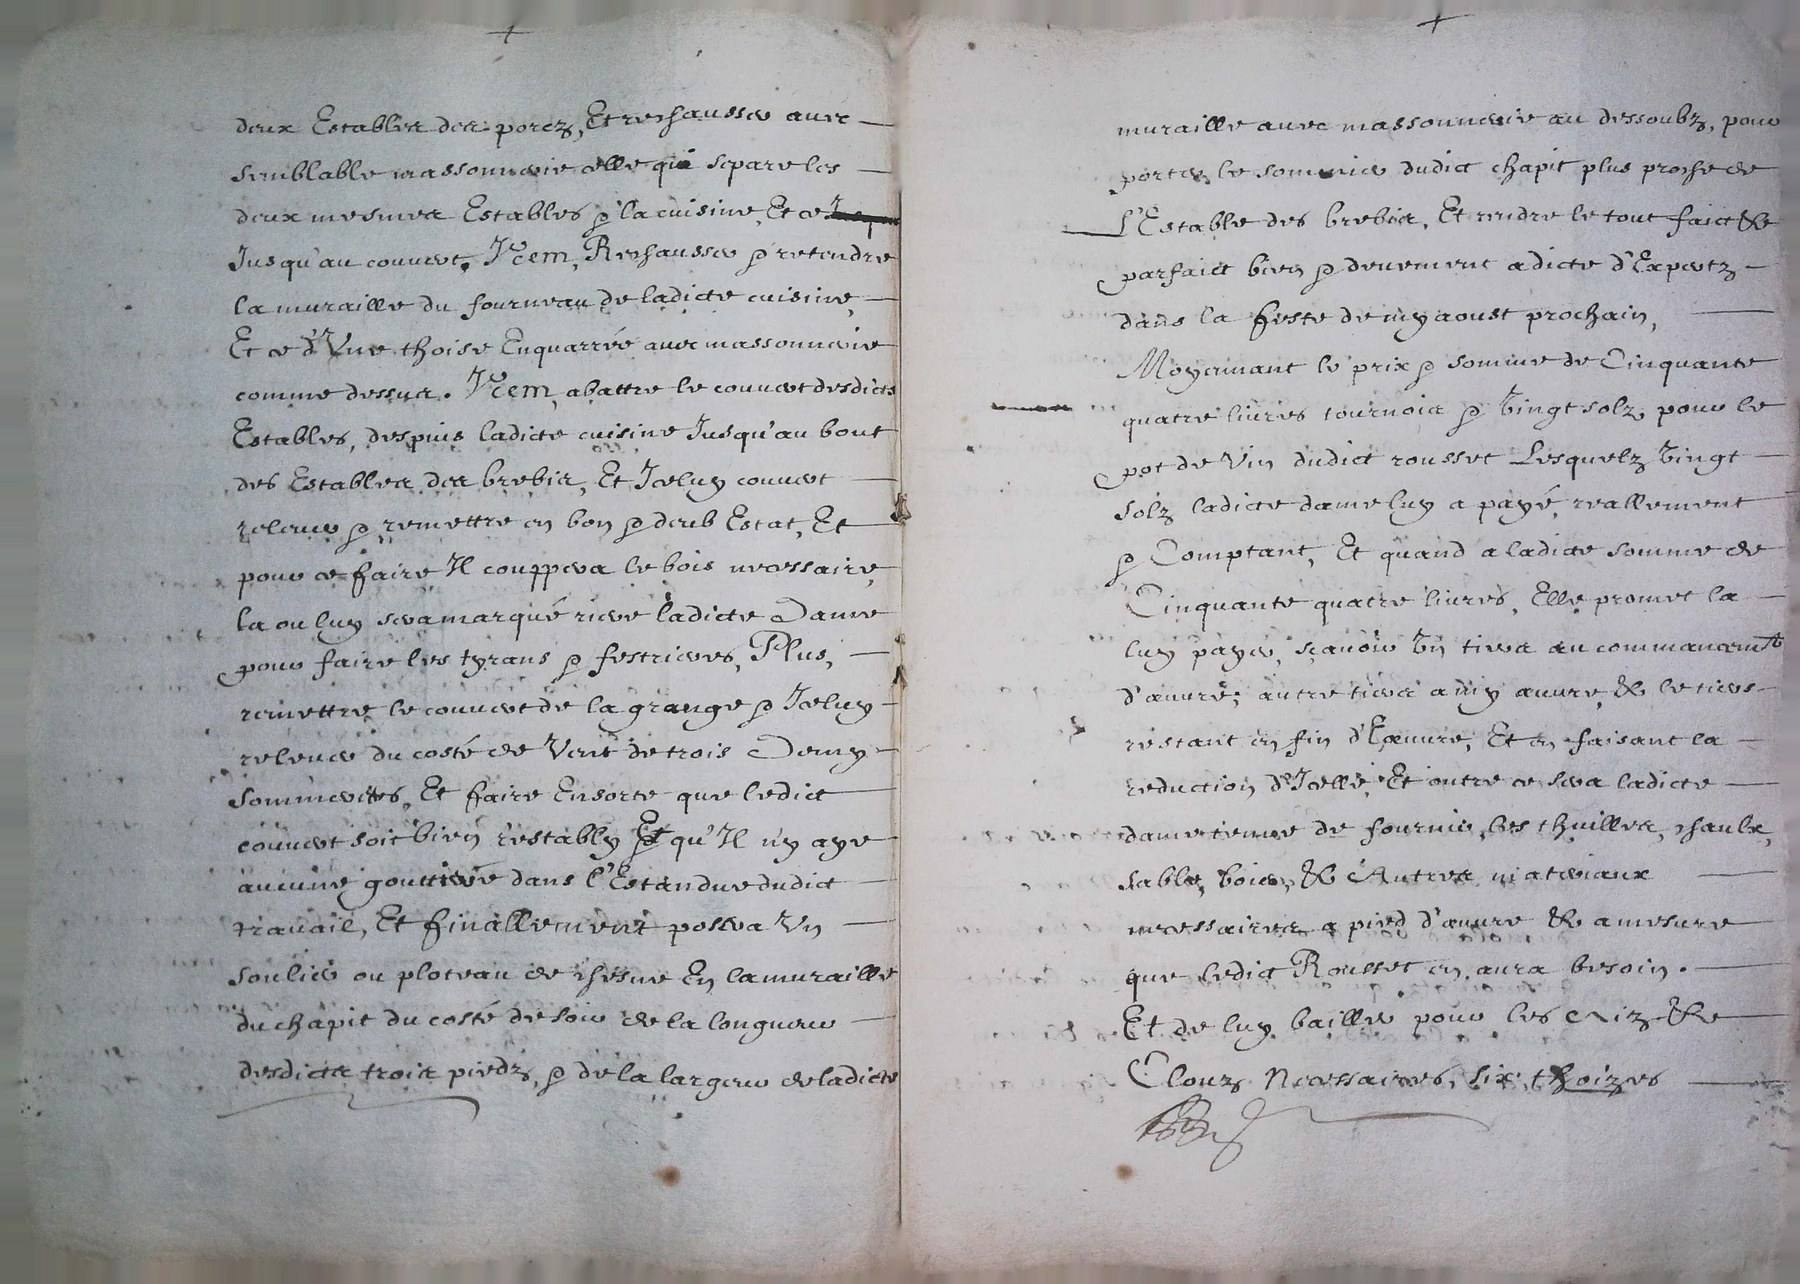 deux Estables des porcz, Et rechausser avec
semblable massonnerie celle qui separe les
deux mesmes Estables & la cuisine, Et ce
Jusqu'au couvert. Item, Rechausser & retendre
la muraille du fourneau de ladicte cuisine,
Et ce d'Une thoise Enquarrée avec massonnerie
comme dessus. Item, abattre le couvert desdicts
Estables, despuis ladicte cuisine Jusqu'au bout
des Estables des brebis, Et Jceluy couvert
relever & remettre en bon & deub Estat, Et
pour ce faire Il couppera le bois necessaire,
la ou luy sera marqué riere ladicte Dame
pour faire les tyrans & festrieres, Plus,
remettre le couvert de la grange & Jceluy
relever du costé de Vent de trois Demy
Sommertes, Et faire Ensorte que ledict
couvert soit bien restably Et qu'Il n'y aye
aucune gouttiere dans l'Estandue dudict
travail, Et finallement posera Un
soulier ou ploteau de chesne En la muraille
du chapit du costé de soir de la longueur
desdicts trois piedz, & de la largeur de ladicte
muraille avec massonnerie au dessoubz, pour
porter le sommier dudict chapit plus proche de
L'Estable des brebis, Et rendre le tout faict &
parfaict bien & deuement a dicte d'Expertz
dans la feste de my aoust prochain,
Moyennant le prix & somme de Cinquante
quatre livres tournois & Vingt solz, pour le
pot de Vin dudict rousset Lesquelz Vingt
solz ladicte dame luy a payé, reallement
& Comptant, Et quand a ladicte somme de
Cinquante quatre livres, Elle promet la
luy payer, sçavoir Un tiers au commancemt
d'œuvre, autre tiers a my œuvre, & le tiers
restant en fin d'Œuvre, Et en faisant la
reduction d'Jcelle, Et outre ce sera ladicte
dame tenue de fournir, les thuilles, chaulx,
sable, bois, & Autres materiaux
necessaires a pied d'œuvre & a mesure
que ledict Rousset en aura besoin.
Et de luy bailler pour les Aiz &
Clouz Necessaires, six thoizes